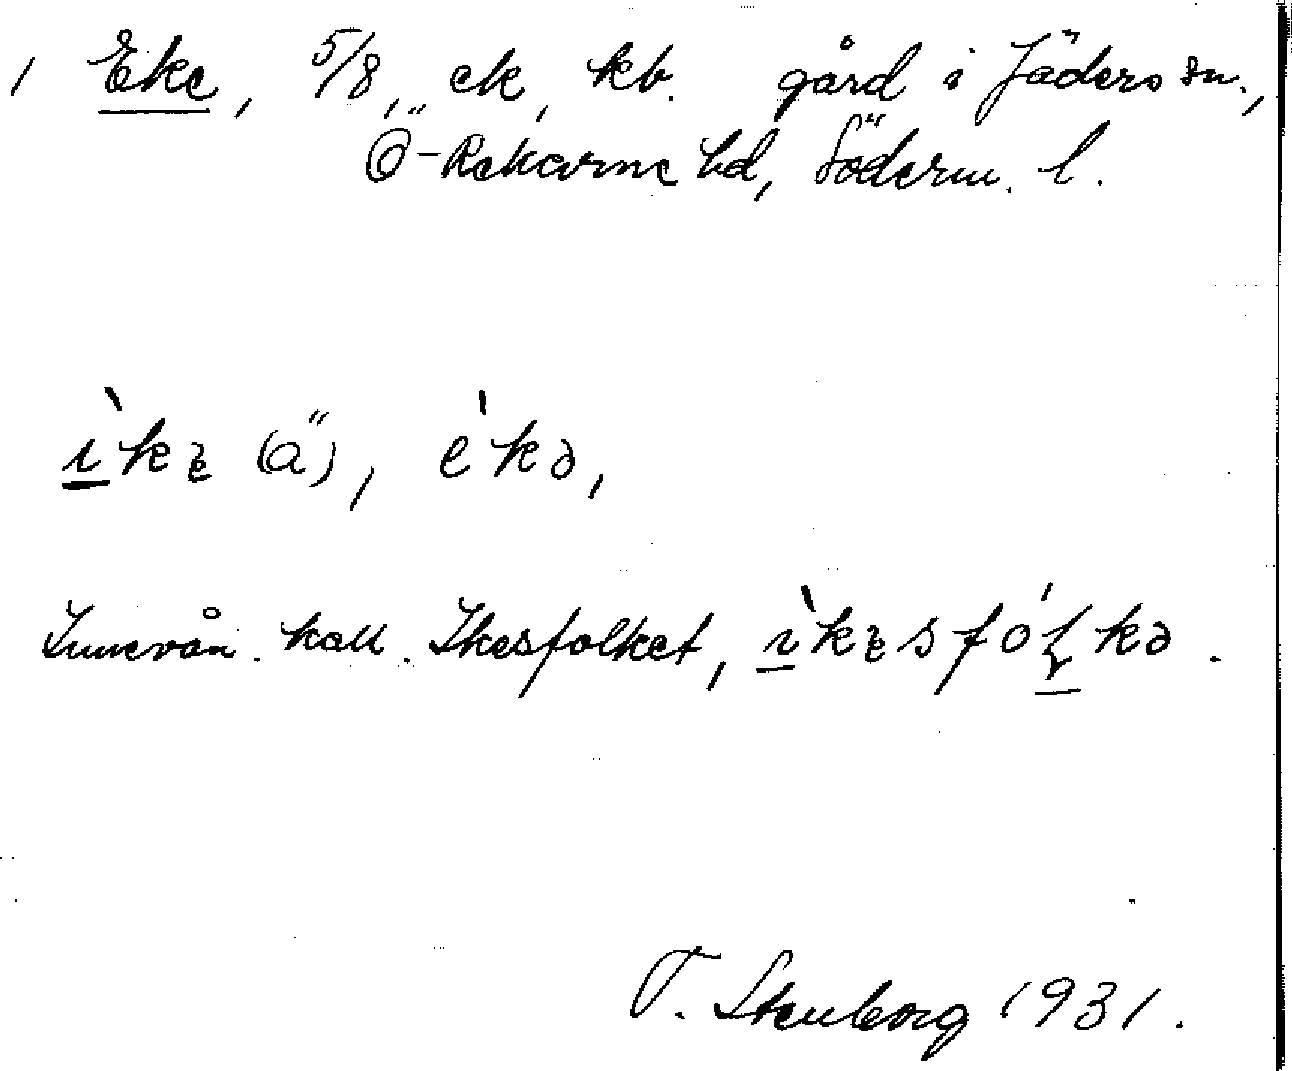 1 Eke, 5/8, ek, kb. gård i Jäders sn.,
Ö-Rekarne hd, Söderm. l.
ı̀kꬲ (ä), èkə,
Innevån. kall. Ikesfolket, ı̀kꬲsfóļkə.
T. Stenborg 1931.